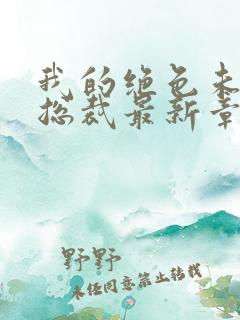 我的绝色未
总裁最新章
野野
未经同意禁止转载